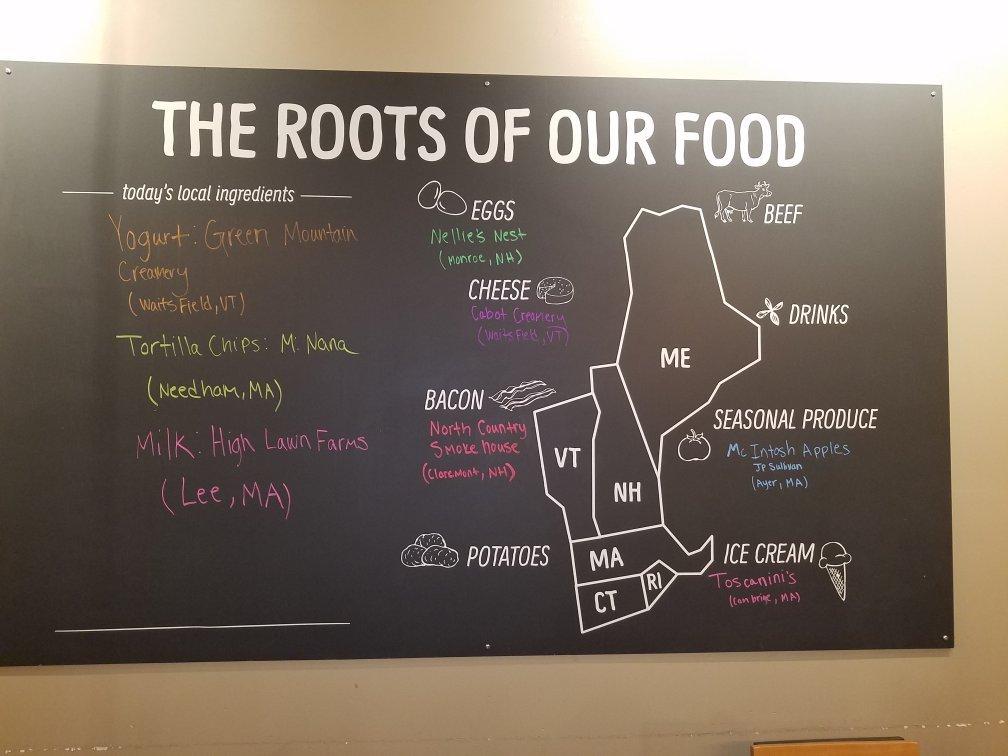 THE ROOTS OF OUR FOOD
today's local ingredients
Yogurt: Green Mountain
Creamery
(Waitsfield, VT)
Tortilla Chips: M. Nana
(Needham, MA)
Milk: High Lawn Farms
(Lee, MA)
EGGS
Nellie's Nest
(Monroe, NH)
CHEESE
Cabot Creamery
(Waitsfield, VT)
BACON
North Country
Smoke house
(Claremont, NH)
POTATOES
ME
VT
NH
MA
RI
CT
BEEF
DRINKS
SEASONAL PRODUCE
Mc Intosh Apples
JP Sullivan
(Ayer, MA)
ICE CREAM
Toscanini's
MA)